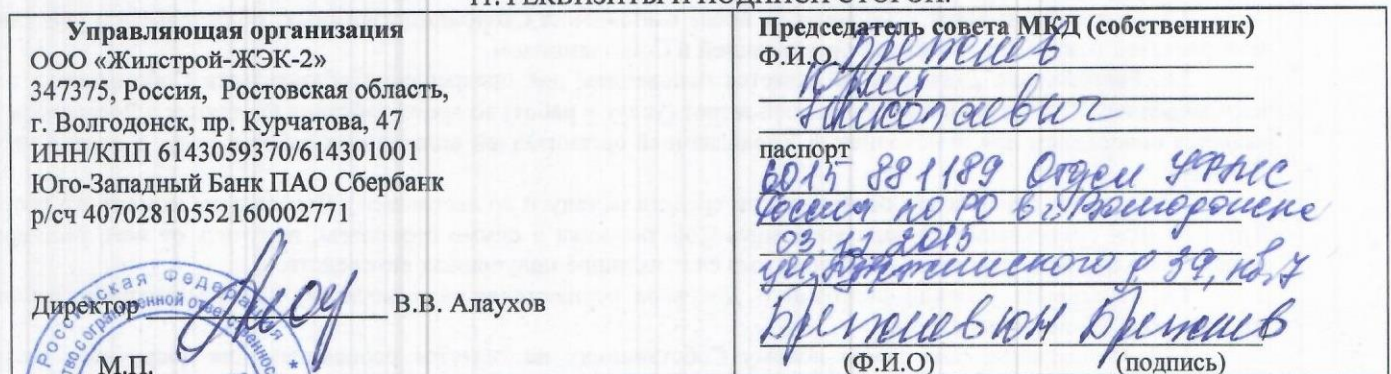 11. РЕКВИЗИТЫ И ПОДПИСИ СТОРОН:
Управляющая организация
ООО «Жилстрой-ЖЭК-2»
347375, Россия, Ростовская область,
г. Волгодонск, пр. Курчатова, 47
ИНН/КПП 6143059370/614301001
Юго-Западный Банк ПАО Сбербанк
р/сч 40702810552160002771
Директор В.В. Алаухов
М.П.
Российская Федерация
Председатель совета МКД (собственник)
Ф.И.О. Брежнев
Юрий
Николаевич
паспорт
6015 881189 Отдел УФМС
России по РО в г. Волгодонске
03.12.2015
ул. Дзержинского д 39, кв, 7
Брежнев ЮН Брежнев
(Ф.И.О) (подпись)